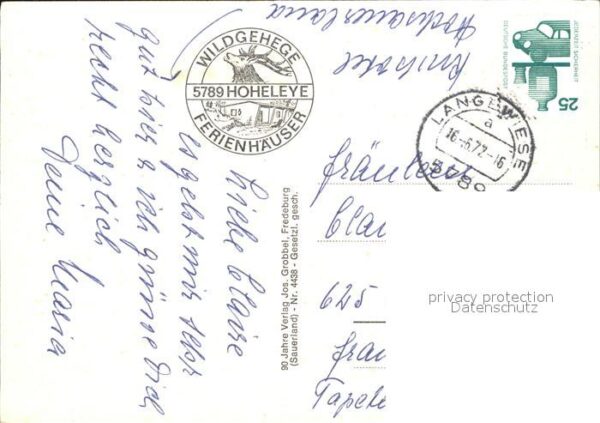 Kurhotel
Hochsauerland
Liebe Claire
es geht mir sehr
gut hier u. ich grüsse Dich
recht herzlich
Deine Maria
WILDGEHEGE
5789 HOHELEYE
FERIENHÄUSER
90 Jahre Verlag Jos. Grobbel, Fredeburg
(Sauerland) - Nr. 4438 - Gesetzl. gesch.
DEUTSCHE BUNDESPOST
JEDERZEIT SICHERHEIT
25
LANGEWIESE
a
16.-6.72-16
5789
Fräulein
Clai
625
Frau
Tapete
privacy protection
Datenschutz